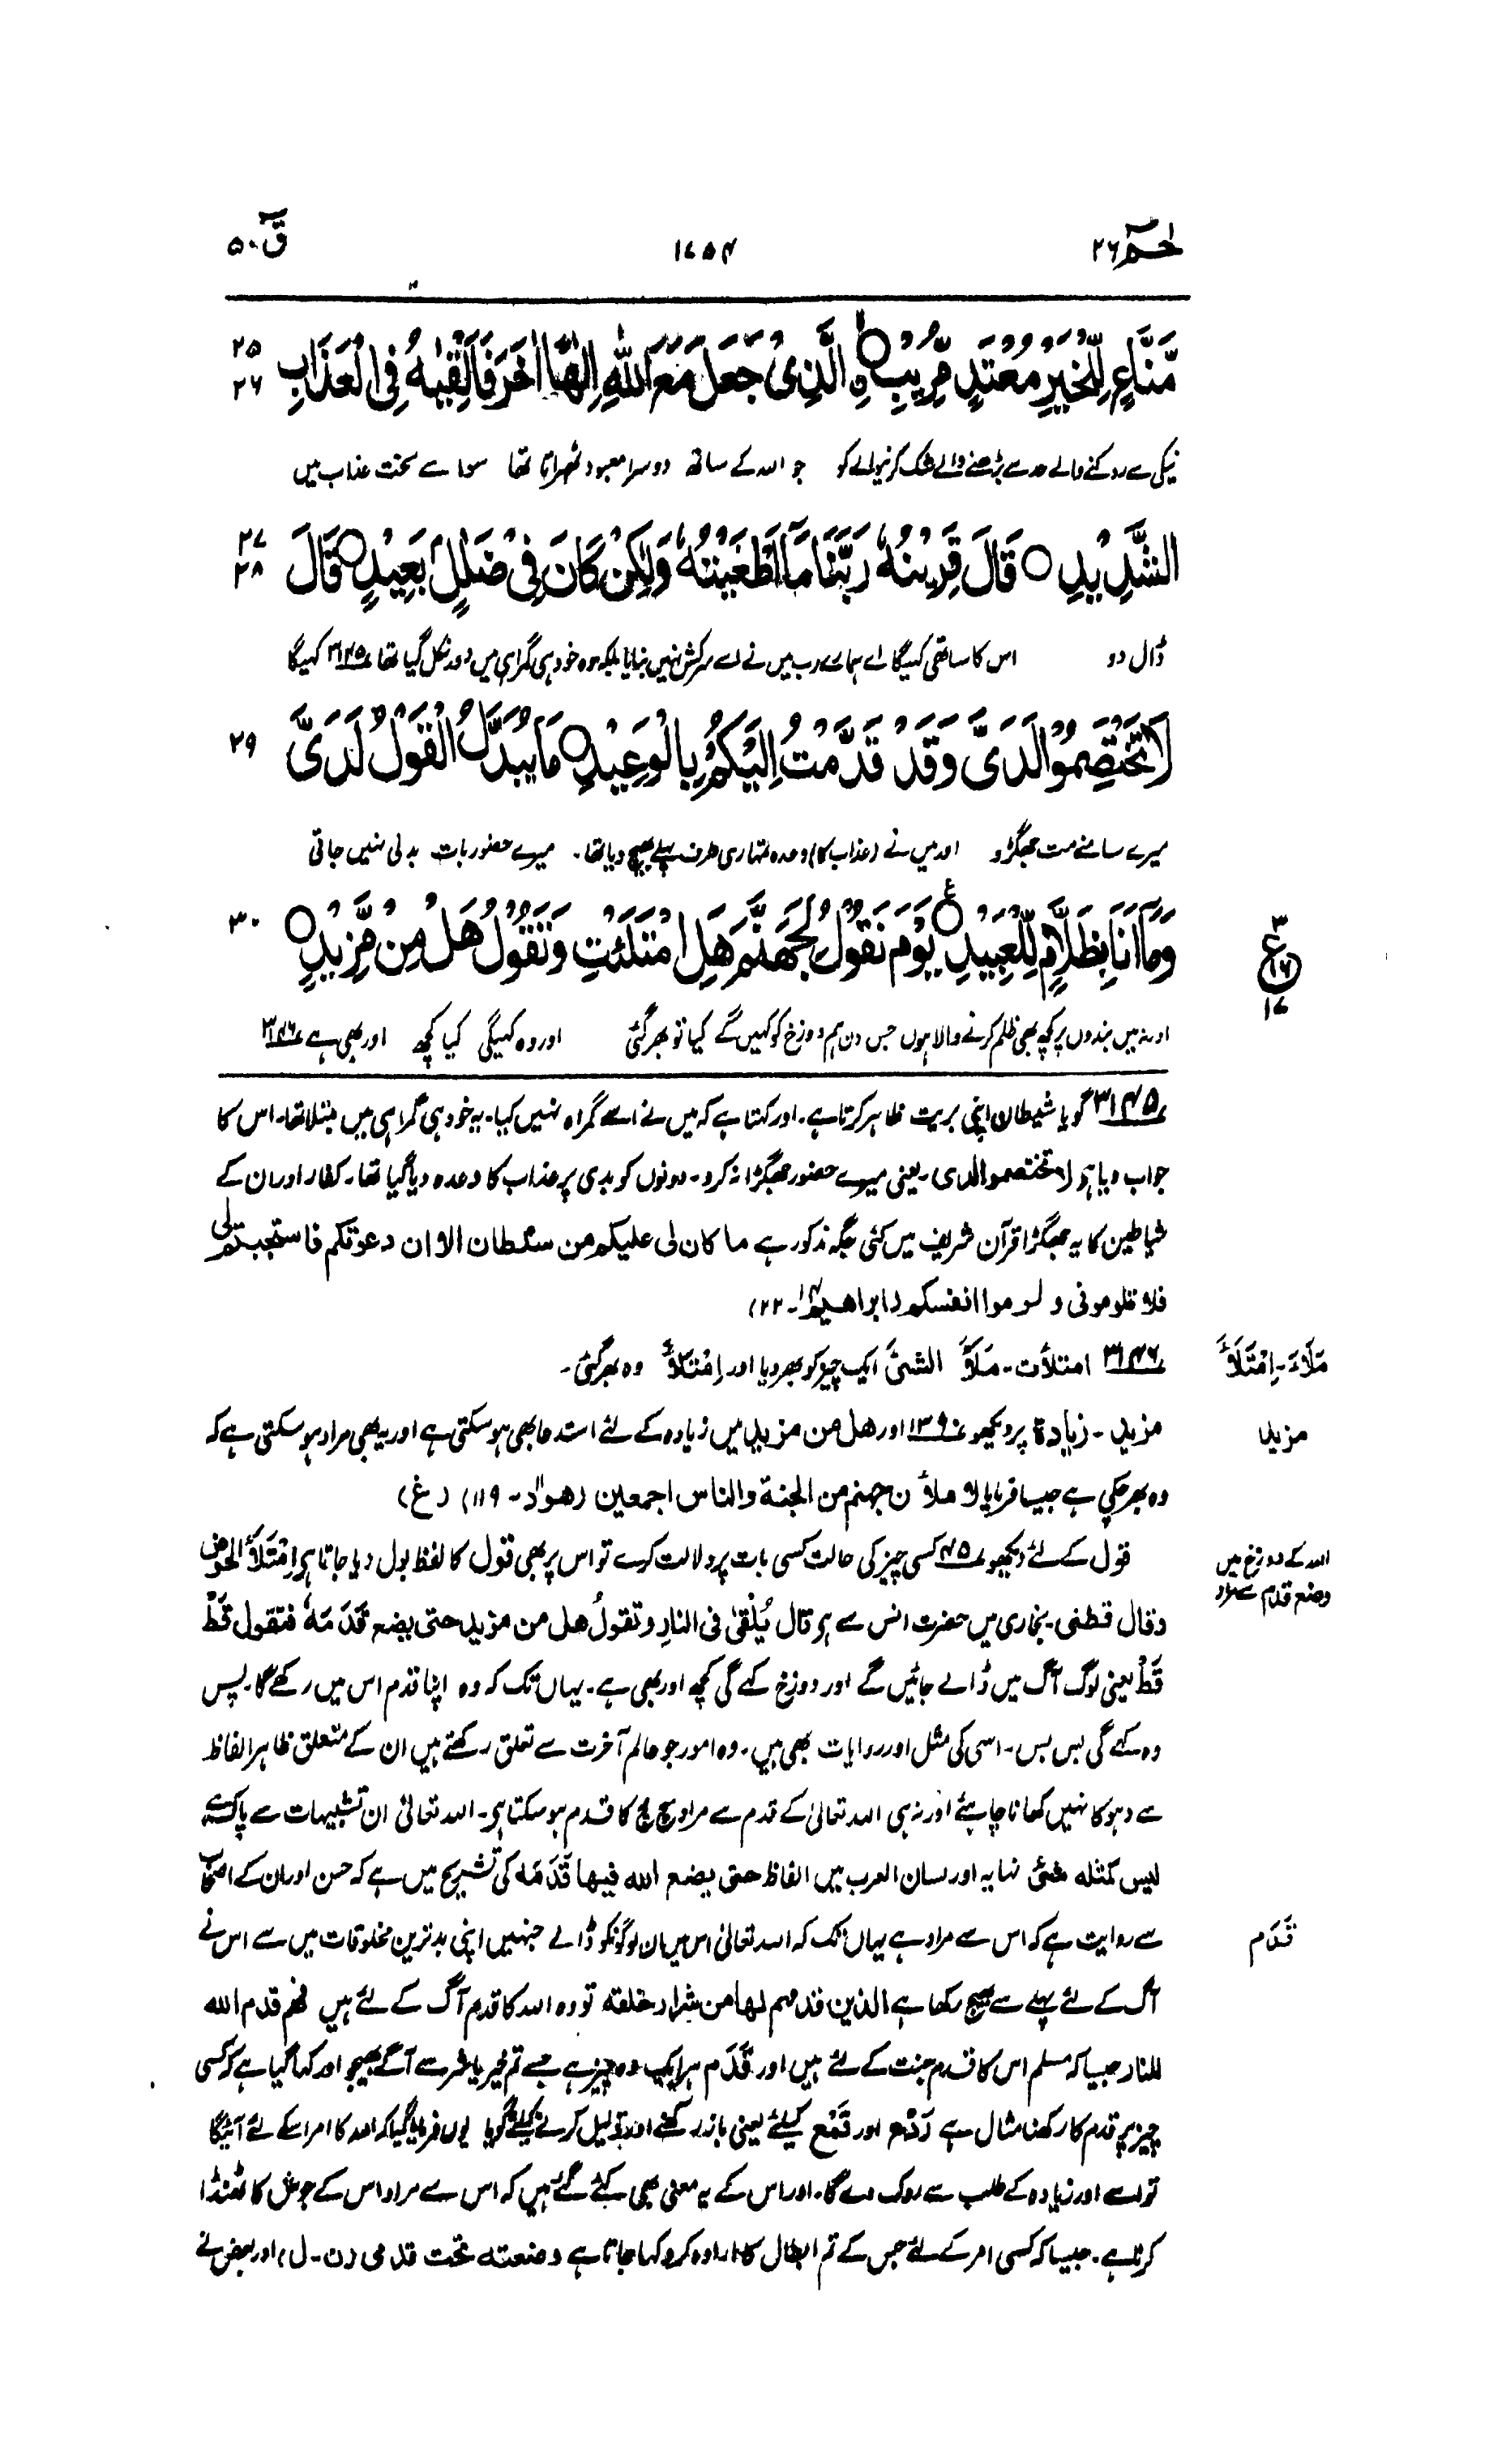 حٰمٓ ۲۶ ۱۷۵۴ قٓ ۵۰
مَّنَّاعٍ لِّلْخَيْرِ مُعْتَدٍ مُّرِيْبِ ○ ۙ الَّذِيْ جَعَلَ مَعَ اللّٰهِ اِلٰهًا اٰخَرَ فَاَلْقِيٰهُ فِي الْعَذَابِ ۲۵ ۲۶
نیکی سے روکنے والے حد سے بڑھنے والے شک کرنیوالے کو جو اللہ کے ساتھ دوسرا معبود ٹھہراتا تھا سو اسے سخت عذاب میں
الشَّدِيْدِ ○ قَالَ قَرِيْنُهٗ رَبَّنَا مَآ اَطْغَيْتُهٗ وَلٰكِنْ كَانَ فِيْ ضَلٰلٍۢ بَعِيْدٍ ○ قَالَ ۲۷ ۲۸
ڈال دو اس کا ساتھی کہیگا اے ہمارے رب میں نے اسے سرکش نہیں بنایا بلکہ وہ خود ہی گمراہی میں دور نکل گیا تھا ۳۱۴۵ کہیگا
لَا تَخْتَصِمُوْا لَدَيَّ وَقَدْ قَدَّمْتُ اِلَيْكُمْ بِالْوَعِيْدِ ○ مَا يُبَدَّلُ الْقَوْلُ لَدَيَّ ۲۹
میرے سامنے مت جھگڑو اور میں نے (عذاب کا) وعدہ تمہاری طرف پہلے بھیج دیا تھا۔ میرے حضور بات بدلی نہیں جاتی
وَمَآ اَنَا بِظَلَّامٍ لِّلْعَبِيْدِ ○ ع يَوْمَ نَقُوْلُ لِجَهَنَّمَ هَلِ امْتَلَئْتِ وَتَقُوْلُ هَلْ مِنْ مَّزِيْدٍ ○ ۳۰
۳ ع ۱۶ ۱۷
اور نہ میں بندوں پر کچھ بھی ظلم کرنے والا ہوں جس دن ہم دوزخ کو کہیں گے کیا تو بھر گئی اور وہ کہیگی کیا کچھ اور بھی ہے ۳۱۴۶
۳۱۴۵ گویا شیطان اپنی بریت ظاہر کرتا ہے۔ اور کہتا ہے کہ میں نے اسے گمراہ نہیں کیا۔ یہ خود ہی گمراہی میں مبتلا تھا۔ اس کا
جواب دیا ہے لا تختصموا لدی۔ یعنی میرے حضور جھگڑا نہ کرو۔ دونوں کو بدی پر عذاب کا وعدہ دیا گیا تھا۔ کفار اور ان کے
شیاطین کا یہ جھگڑا قرآن شریف میں کئی جگہ مذکور ہے ما کان لی علیکم من سلطان الا ان دعوتکم فاستجبتم لی
فلا تلومونی و لوموا انفسکم (ابراھیم ۱۴۔ ۲۲)
۳۱۴۶ امتلأت۔ مَلَأَ الشئَ ایک چیز کو بھر دیا اور اِمْتَلَأَ وہ بھر گئی۔
مَلَاءَ۔ اِمْتَلَأَ
مزید۔ زیادۃ پر دیکھو ۱۳۹۰ اور ھل من مزید میں زیادہ کے لئے استدعا بھی ہو سکتی ہے اور یہ بھی مراد ہو سکتی ہے کہ
مزید
وہ بھر چکی ہے جیسا فرمایا لاملأن جھنم من الجنۃ والناس اجمعین (ھود ۱۱۔ ۱۱۹) (غ)
قول کے لئے دیکھو ۴۵ کسی چیز کی حالت کسی بات پر دلالت کرے تو اس پر بھی قول کا لفظ بول دیا جاتا ہے اِمْتَلَأَ الحوض
اللہ کے دوزخ میں
وضع قدم سے مراد
وقال قطنی۔ بخاری میں حضرت انس سے ہے قال یُلْقیٰ فی النارِ وتقولُ ھل من مزید حتی یضع قَدَمَہٗ فتقول قَطْ
قَطْ یعنی لوگ آگ میں ڈالے جائیں گے اور دوزخ کہے گی کچھ اور بھی ہے۔ یہاں تک کہ وہ اپنا قدم اس میں رکھے گا۔ پس
وہ کہے گی بس بس۔ اسی کی مثل اور روایات بھی ہیں۔ وہ امور جو عالم آخرت سے تعلق رکھتے ہیں ان کے متعلق ظاہر الفاظ
سے دہوکا نہیں کھانا چاہئے اور نہ ہی اللہ تعالیٰ کے قدم سے مراد سچ مچ کا قدم ہو سکتا ہے۔ اللہ تعالیٰ ان تشبیہات سے پاک ہے
لیس کمثلہ شئ نہایہ اور لسان العرب میں الفاظ حتی یضع اللہ فیھا قَدَمَہ کی تشریح میں ہے کہ حسن اور ان کے اصحاب
سے روایت ہے کہ اس سے مراد ہے یہاں تک کہ اللہ تعالیٰ اس میں ان لوگونکو ڈالے جنہیں اپنی بدترین مخلوقات میں سے اس نے
قَدَم
آگ کے لئے پہلے سے بھیج رکھا ہے الذین قدمھم لھا من شرار خلقہ تو وہ اللہ کا قدم آگ کے لئے ہیں فھم قدم اللہ
للنار جیسا کہ مسلم اس کا قدم جنت کے لئے ہیں اور قَدَم ہر ایک وہ چیز ہے جسے تم خیر یا شر سے آگے بھیجو اور کہا گیا ہے کہ کسی
چیز پر قدم کا رکھنا مثال ہے رَدْع اور قَمْع کیلئے یعنی باز رکھنے اور ذلیل کرنے کیلئے گویا یوں فرمایا گیا کہ اللہ کا امر اسکے لئے آئیگا
تو اسے اور زیادہ کے طلب سے روک دے گا۔ اور اس کے یہ معنی بھی کئے گئے ہیں کہ اس سے مراد اس کے جوش کا ٹھنڈا
کرنا ہے۔ جیسا کہ کسی امر کے لئے جس کے تم ابطال کا ارادہ کرو کہا جاتا ہے وضعتہ تحت قدمی (ن۔ ل) اور بعض نے